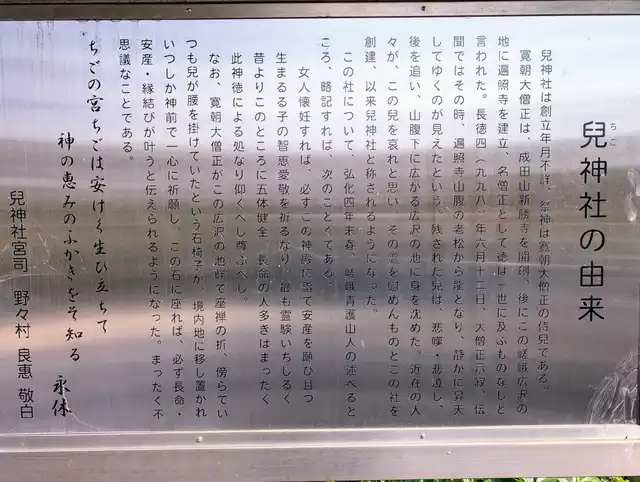 兒神社の由来
ちご
兒神社は創立年月不詳、祭神は寛朝大僧正の侍兒である。
寛朝大僧正は、成田山新勝寺を開創、後にこの嵯峨広沢の
地に遍照寺を建立、名僧正として徳は一世に及ぶものなしと
言われた。長徳四(九九八)年六月十二日、大僧正示寂、伝
聞ではその時、遍照寺山腹の老松から龍となり、静かに昇天
してゆくのが見えたという。残された兒は、悲嘆・悲泣し、
後を追い、山腹下に広がる広沢の池に身を沈めた。近在の人
々が、この兒を哀れと思い、その霊を慰めんものとこの社を
創建、以来兒神社と称されるようになった。
この社について、弘化四年末春、嵯峨青護山人の述べると
ころ、略記すれば、次のごとくである。
女人懐妊すれば、必ずこの神殿に詣て安産を願ひ且つ
生まるる子の智恵愛敬を祈るなり、最も霊験いちしるく
昔よりこのところに五体健全、長命の人多きはまったく
此神徳による処なり仰くへし尊ぶべし。
なお、寛朝大僧正がこの広沢の池畔で座禅の折、傍らでい
つも兒が腰を掛けていたという石椅子が、境内地に移し置かれ
いつしか神前で一心に祈願し、この石に座れば、必ず長命・
安産・縁結びが叶うと伝えられるようになった。まったく不
思議なことである。
ちごの宮ちごは安けく生ひ立ちて
神の恵みのふかきをそ知る
永休
兒神社宮司 野々村 良惠 敬白